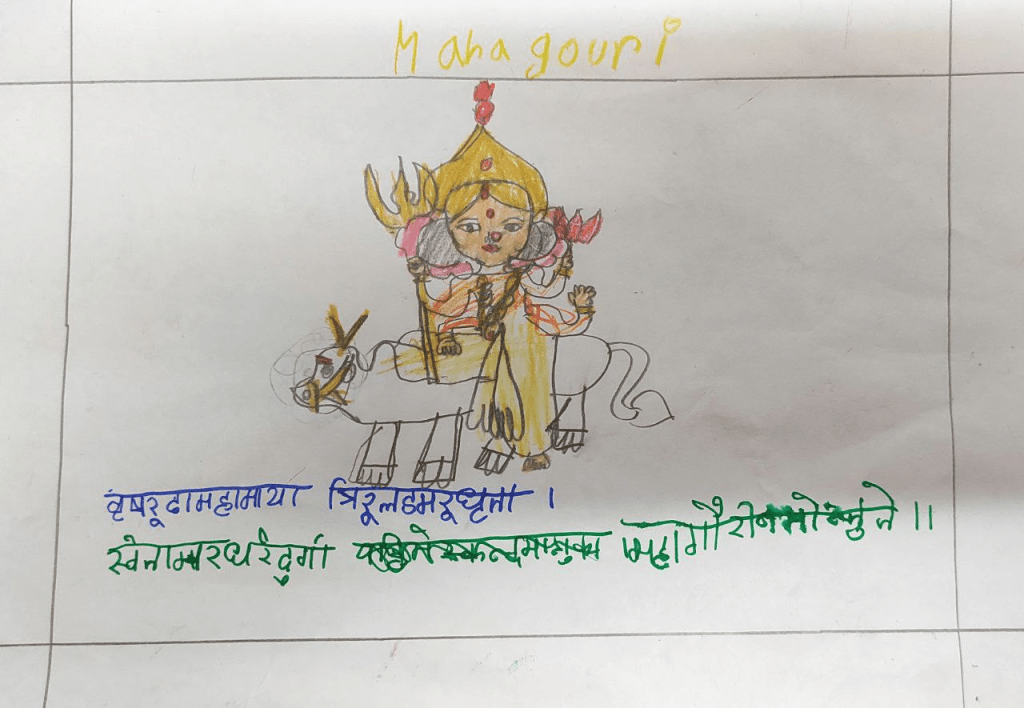 Mahagouri
वृषरूढामहामाया त्रिरूलडमरूधृता ।
स्वेताम्बरधरेदुर्गा महागौरीनमोस्तुते ।।